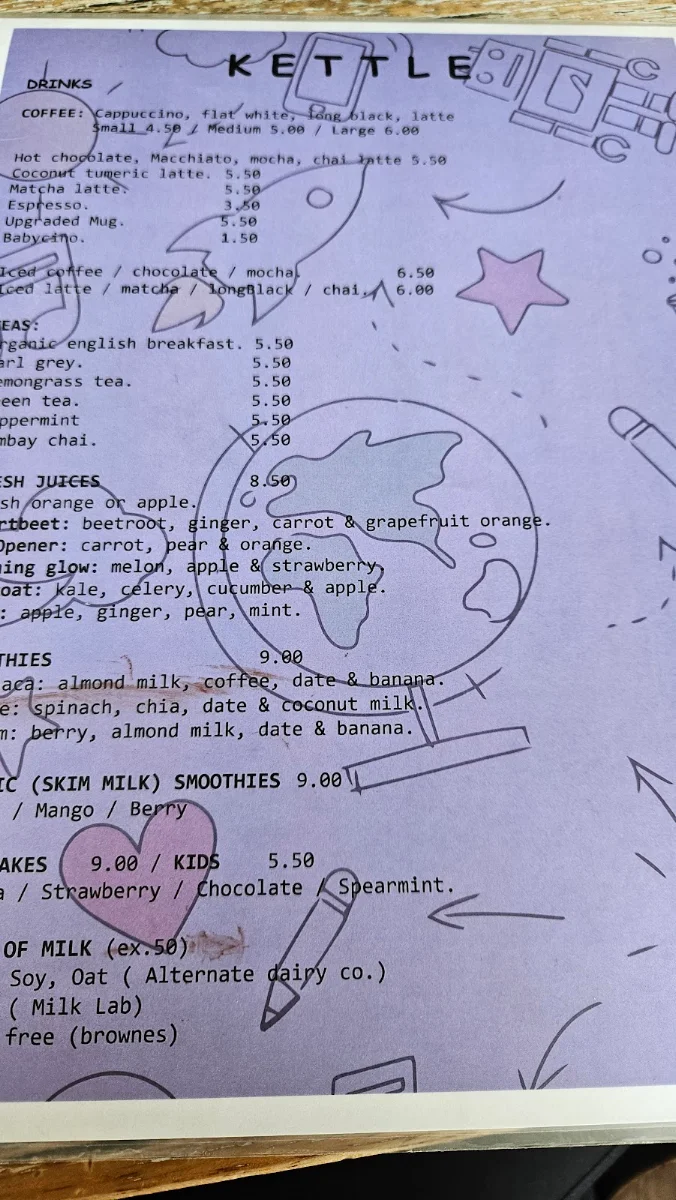 KETTLE
DRINKS
COFFEE: Cappuccino, flat white, long black, latte
Small 4.50 / Medium 5.00 / Large 6.00
Hot chocolate, Macchiato, mocha, chai latte 5.50
Coconut tumeric latte. 5.50
Matcha latte. 5.50
Espresso. 3.50
Upgraded Mug. 5.50
Babycino. 1.50
Iced coffee / chocolate / mocha. 6.50
Iced latte / matcha / longBlack / chai. 6.00
EAS:
rganic english breakfast. 5.50
arl grey. 5.50
emongrass tea. 5.50
een tea. 5.50
ppermint 5.50
mbay chai. 5.50
SH JUICES 8.50
sh orange or apple.
rtbeet: beetroot, ginger, carrot & grapefruit orange.
Opener: carrot, pear & orange.
ing glow: melon, apple & strawberry.
oat: kale, celery, cucumber & apple.
: apple, ginger, pear, mint.
THIES 9.00
aca: almond milk, coffee, date & banana.
e: spinach, chia, date & coconut milk.
m: berry, almond milk, date & banana.
IC (SKIM MILK) SMOOTHIES 9.00
/ Mango / Berry
AKES 9.00 / KIDS 5.50
a / Strawberry / Chocolate / Spearmint.
OF MILK (ex.50)
Soy, Oat ( Alternate dairy co.)
( Milk Lab)
free (brownes)